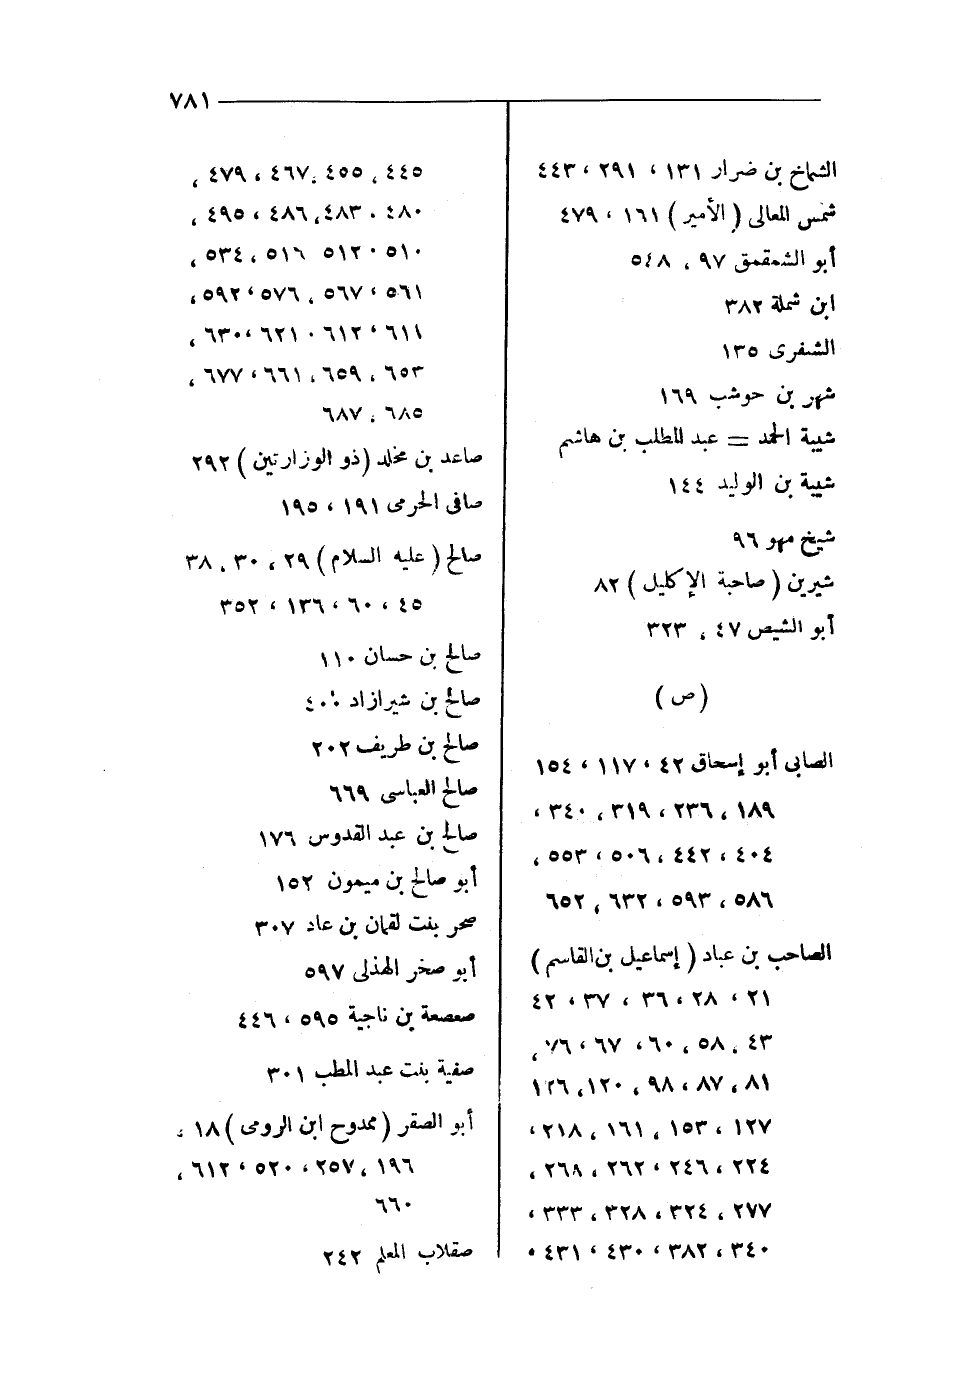 ٧٨١
الشماخ بن ضرار ١٣١ ، ٢٩١ ، ٤٤٣
شمس المعالى ( الأمير ) ١٦١ ، ٤٧٩
أبو الشمقمق ٩٧ ، ٥٤٨
ابن شملة ٣٨٢
الشنفرى ١٣٥
شهر بن حوشب ١٦٩
شيبة الحمد = عبد المطلب بن هاشم
شيبة بن الوليد ١٤٤
شيخ مهو ٩٦
شيرين ( صاحبة الإكليل ) ٨٢
أبو الشيص ٤٧ ، ٣٢٣
( ص )
الصابى أبو إسحاق ٤٢ ، ١١٧ ، ١٥٤
١٨٩ ، ٢٣٦ ، ٣١٩ ، ٣٤٠ ،
٤٠٤ ، ٤٤٢ ، ٥٠٦ ، ٥٥٣ ،
٥٨٦ ، ٥٩٣ ، ٦٣٢ ، ٦٥٢
الصاحب بن عباد ( إسماعيل بن القاسم )
٢١ ، ٢٨ ، ٣٦ ، ٣٧ ، ٤٢
٤٣ ، ٥٨ ، ٦٠ ، ٦٧ ، ٧٦ ،
٨١ ، ٨٧ ، ٩٨ ، ١٢٠ ، ١٢٦
١٢٧ ، ١٥٣ ، ١٦١ ، ٢١٨ ،
٢٢٤ ، ٢٤٦ ، ٢٦٢ ، ٢٦٨ ،
٢٧٧ ، ٣٢٤ ، ٣٢٨ ، ٣٣٣ ،
٣٤٠ ، ٣٨٢ ، ٤٣٠ ، ٤٣١ ،
٤٤٥ ، ٤٥٥ ، ٤٦٧ ، ٤٧٩ ،
٤٨٠ ، ٤٨٣ ، ٤٨٦ ، ٤٩٥ ،
٥١٠ ، ٥١٢ ٥١٦ ، ٥٣٤ ،
٥٦١ ، ٥٦٧ ، ٥٧٦ ، ٥٩٢ ،
٦١١ ، ٦١٢ ، ٦٢١ ، ٦٣٠ ،
٦٥٣ ، ٦٥٩ ، ٦٦١ ، ٦٧٧ ،
٦٨٥ ، ٦٨٧
صاعد بن مخلد ( ذو الوزارتين ) ٢٩٢
صافى الحرمى ١٩١ ، ١٩٥
صالح ( عليه السلام ) ٢٩ ، ٣٠ ، ٣٨
٤٥ ، ٦٠ ، ١٣٦ ، ٣٥٢
صالح بن حسان ١١٠
صالح بن شيرازاد
صالح بن طريف ٢٠٢
صالح العباسى ٦٦٩
صالح بن عبد القدوس ١٧٦
أبو صالح بن ميمون ١٥٢
صحر بنت لقمان بن عاد ٣٠٧
أبو صخر الهذلى ٥٩٧
صعصعة بن ناجية ٥٩٥ ، ٤٤٦
صفية بنت عبد المطب ٣٠١
أبو الصقر ( ممدوح ابن الرومى ) ١٨ ،
١٩٦ ، ٢٥٧ ، ٥٢٠ ، ٦١٢ ،
٦٦٠
صقلاب المعلم ٢٤٢